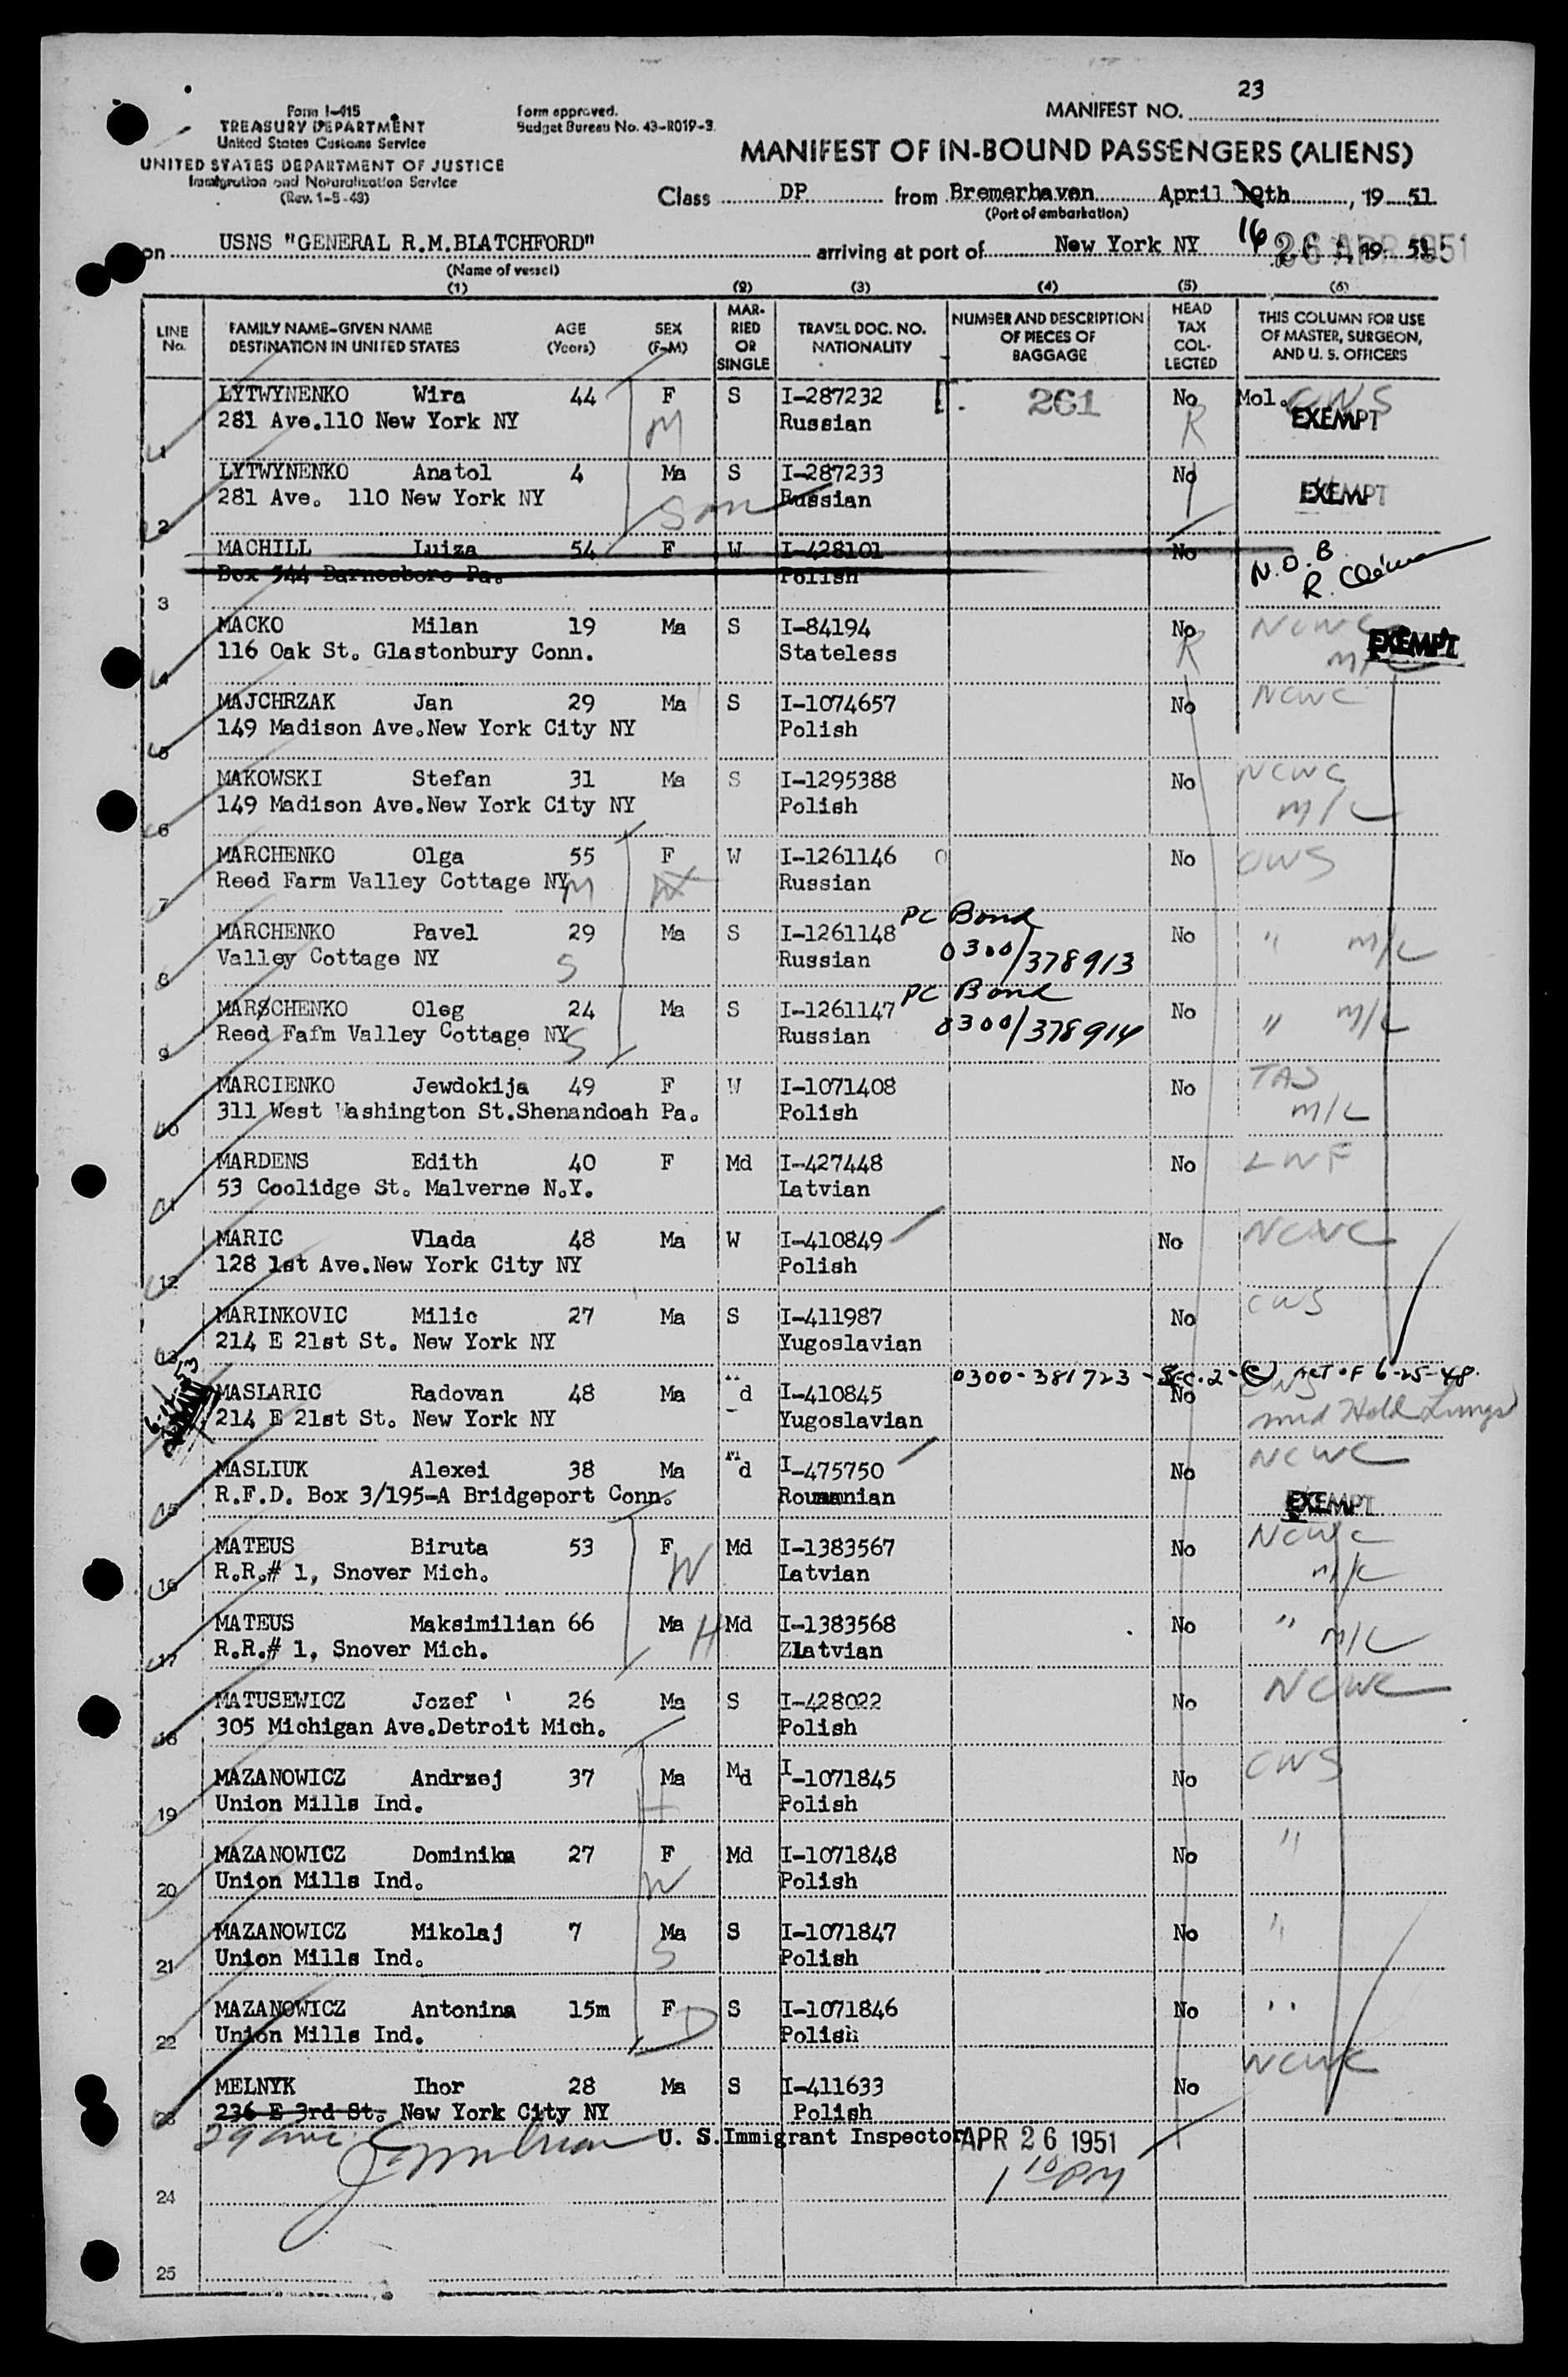 23
Form I-415
TREASURY DEPARTMENT
United States Customs Service
UNITED STATES DEPARTMENT OF JUSTICE
Immigration and Naturalization Service
(Rev. 1-5-48)
Form approved.
Budget Bureau No. 43-R019-3.
MANIFEST NO.
MANIFEST OF IN-BOUND PASSENGERS (ALIENS)
Class DP from Bremerhaven April 10th, 1951
(Port of embarkation) 16
on USNS "GENERAL R.M.BLATCHFORD" arriving at port of New York NY 26 APR 1951 , 19 51
(Name of vessel)
(1) (2) (3) (4) (5) (6)
LINE No. FAMILY NAME-GIVEN NAME DESTINATION IN UNITED STATES AGE (Years) SEX (F-M) MARRIED OR SINGLE TRAVEL DOC. NO. NATIONALITY NUMBER AND DESCRIPTION OF PIECES OF BAGGAGE HEAD TAX COLLECTED THIS COLUMN FOR USE OF MASTER, SURGEON, AND U. S. OFFICERS
LYTWYNENKO Wira 44 F S I-287232 261 No Mol. CWS
1 281 Ave.110 New York NY M Russian R EXEMPT
LYTWYNENKO Anatol 4 Ma S I-287233 No
2 281 Ave. 110 New York NY Son Russian EXEMPT
MACHILL Luiza 54 F W I-428101 No N.O.B
3 Box 344 Barnesboro Pa. Polish R.
MACKO Milan 19 Ma S I-84194 No NCWC EXEMPT
4 116 Oak St. Glastonbury Conn. Stateless R M/L
MAJCHRZAK Jan 29 Ma S I-1074657 No NCWC
5 149 Madison Ave.New York City NY Polish
MAKOWSKI Stefan 31 Ma S I-1295388 No NCWC
6 149 Madison Ave.New York City NY Polish M/L
MARCHENKO Olga 55 F W I-1261146 No CWS
7 Reed Farm Valley Cottage NY M Russian
PC Bond
MARCHENKO Pavel 29 Ma S I-1261148 No " M/L
8 Valley Cottage NY S Russian 0300/378913
PC Bond
MARSCHENKO Oleg 24 Ma S I-1261147 No " M/L
9 Reed Fafm Valley Cottage NY S Russian 0300/378914
MARCIENKO Jewdokija 49 F W I-1071408 No TAS
10 311 West Washington St.Shenandoah Pa. Polish M/L
MARDENS Edith 40 F Md I-427448 No LWF
11 53 Coolidge St. Malverne N.Y. Latvian
MARIC Vlada 48 Ma W I-410849 No NCWC
12 128 1st Ave.New York City NY Polish
MARINKOVIC Milic 27 Ma S I-411987 No CWS
13 214 E 21st St. New York NY Yugoslavian
0300-381723-Sec.2-(c) ACT OF 6-25-48.
MASLARIC Radovan 48 Ma Md I-410845 No CWS
214 E 21st St. New York NY Yugoslavian Med Hold Lungs
MASLIUK Alexei 38 Ma Md I-475750 No NCWC
15 R.F.D. Box 3/195-A Bridgeport Conn. Roumanian EXEMPT
MATEUS Biruta 53 F W Md I-1383567 No NCWC
16 R.R.# 1, Snover Mich. Latvian M/L
MATEUS Maksimilian 66 Ma H Md I-1383568 No " M/L
17 R.R.# 1, Snover Mich. Zlatvian
MATUSEWICZ Jozef 26 Ma S I-428022 No NCWC
18 305 Michigan Ave.Detroit Mich. Polish
MAZANOWICZ Andrzej 37 Ma Md I-1071845 No CWS
19 Union Mills Ind. H Polish
MAZANOWICZ Dominika 27 F Md I-1071848 No "
20 Union Mills Ind. W Polish
MAZANOWICZ Mikolaj 7 Ma S I-1071847 No "
21 Union Mills Ind. S Polish
MAZANOWICZ Antonina 15m F D S I-1071846 No "
22 Union Mills Ind. Polish
MELNYK Ihor 28 Ma S I-411633 No NCWC
23 236 E 3rd St. New York City NY Polish
U. S. Immigrant Inspector APR 26 1951
1 10 PM
24
25